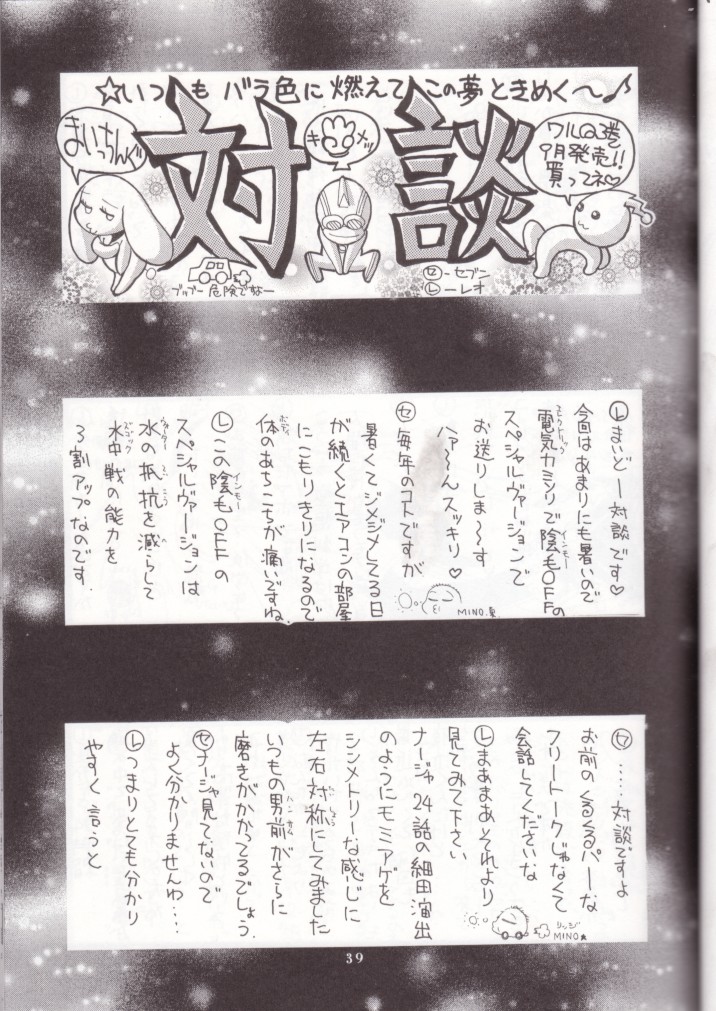 ☆いつもバラ色に燃えてこの夢ときめく〜♪
対談
まいっちんぐ
キメッ
ワルQ3巻
9月発売!!
買ってネ♡
ブッブー危険でなー
セ-セブン
レ-レオ
レ まいどー対談です♡
今回はあまりにも暑いので
電気カミソリで陰毛OFFの
エレクトリック
インモー
スペシャルヴァージョンで
お送りしま〜す
ハァ〜んスッキリ♡
セ 毎年のコトですが
暑くてジメジメしてる日
が続くとエアコンの部屋
にこもりきりになるので
体のあちこちが痛いですね
ボディ
レ この陰毛OFFの
インモー
スペシャルヴァージョンは
水の抵抗を減らして
ウォーター
ていこう
へ
水中戦の能力を
3割アップなのです.
MINO.
セ ……対談ですよ
お前のくるくるパーな
フリートークじゃなくて
会話してくださいな
レ まあまあそれより
見てみて下さい
ナージャ24話の細田演出
のようにモミアゲを
シンメトリーな感じに
左右対称にしてみました
たいしょう
いつもの男前がさらに
ハンサム
磨きがかかってるでしょう.
セ ナージャ見てないので
よく分かりませんわ….
レ つまりとても分かり
やすく言うと
MINO★
39